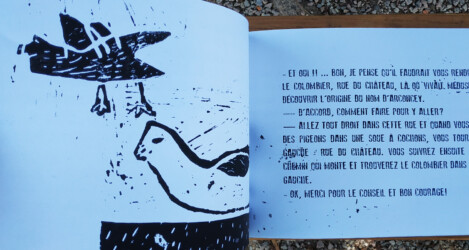 - ET OUI !! ... BON, JE PENSE QU'IL FAUDRAIT VOUS REND
LE COLOMBIER, RUE DU CHATEAU, LÀ OÙ VIVAIT MÉDUS
DÉCOUVRIR L'ORIGINE DU NOM D'ARCONCEY.
- D'ACCORD, COMMENT FAIRE POUR Y ALLER?
- ALLEZ TOUT DROIT DANS CETTE RUE ET QUAND VOUS
DES PIGEONS DANS UNE SOUE À COCHONS, VOUS TOU
GAUCHE RUE DU CHATEAU. VOUS SUIVREZ ENSUITE
CHEMIN QUI MONTE ET TROUVEREZ LE COLOMBIER DANS
GAUCHE.
- OK, MERCI POUR LE CONSEIL ET BON COURAGE!